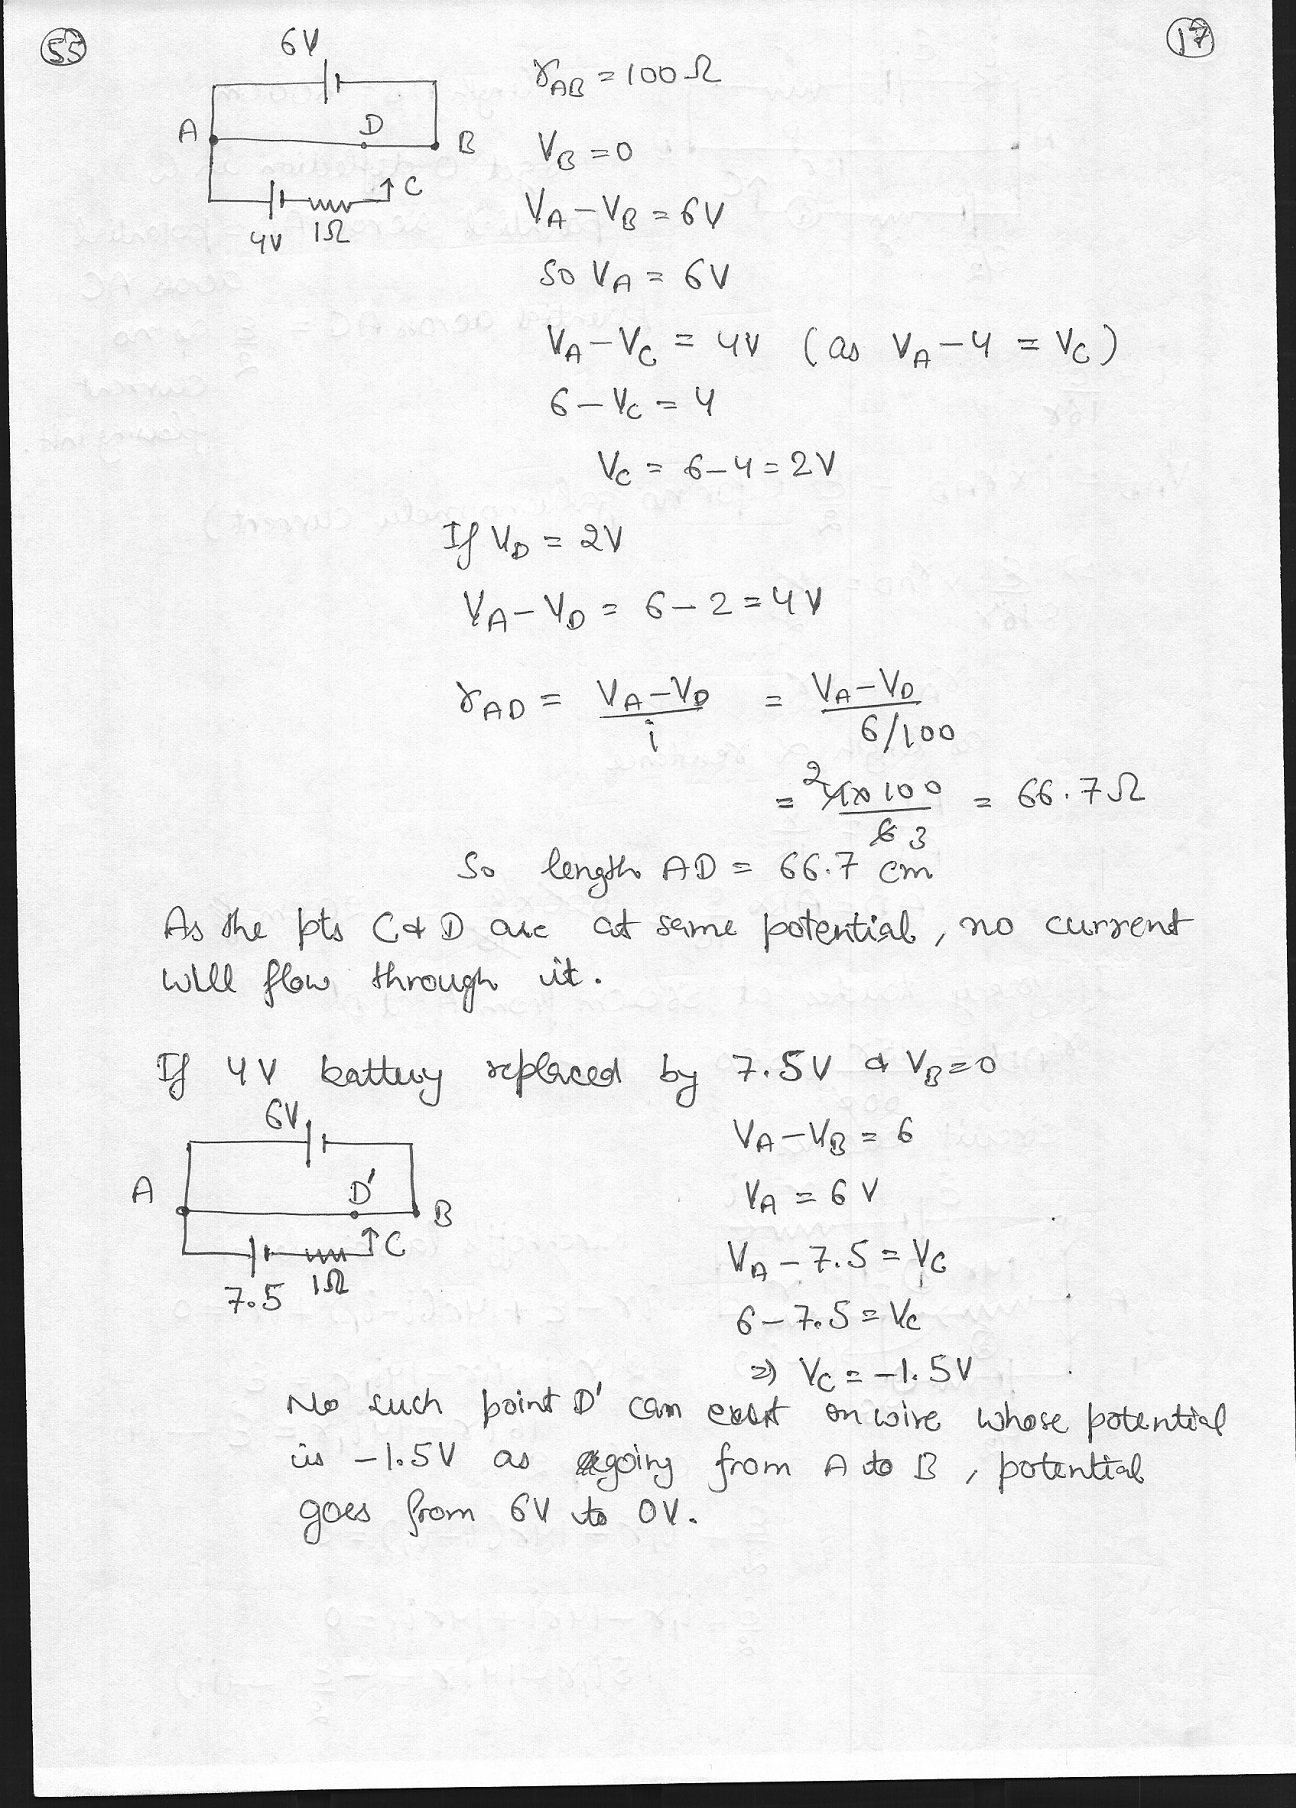 55
17
6V
A
D
B
C
4V 1Ω
r_AB = 100Ω
V_B = 0
V_A – V_B = 6V
So V_A = 6V
V_A – V_C = 4V (as V_A – 4 = V_C)
6 – V_C = 4
V_C = 6 – 4 = 2V
If V_D = 2V
V_A – V_D = 6 – 2 = 4V
r_AD = (V_A – V_D)/i = (V_A – V_D)/(6/100)
= 2 4 x 100 / 6 3 = 66.7Ω
So length AD = 66.7 cm
As the pts C & D are at same potential, no current
will flow through it.
If 4V battery replaced by 7.5V & V_B = 0
6V
A
D'
B
C
7.5 1Ω
V_A – V_B = 6
V_A = 6V
V_A – 7.5 = V_C
6 – 7.5 = V_C
⇒ V_C = –1.5V
No such point D' can exist on wire whose potential
is –1.5V as going from A to B, potential
goes from 6V to 0V.